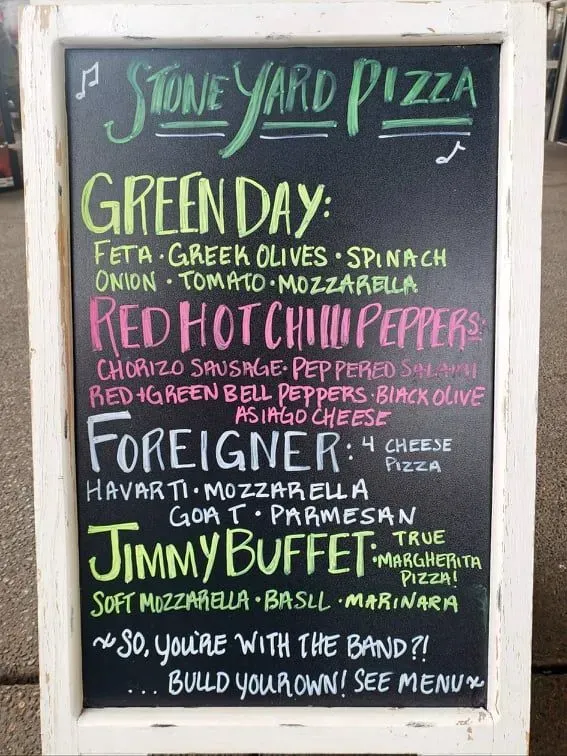 STONE YARD PIZZA
GREEN DAY:
FETA · GREEK OLIVES · SPINACH
ONION · TOMATO · MOZZARELLA
RED HOT CHILLI PEPPERS:
CHORIZO SAUSAGE · PEPPERED SALAMI
RED + GREEN BELL PEPPERS · BLACK OLIVE
ASIAGO CHEESE
FOREIGNER: 4 CHEESE
PIZZA
HAVARTI · MOZZARELLA
GOAT · PARMESAN
JIMMY BUFFET: TRUE
·MARGHERITA
PIZZA!
SOFT MOZZARELLA · BASIL · MARINARA
~SO, YOU'RE WITH THE BAND?!
... BUILD YOUR OWN! SEE MENU~